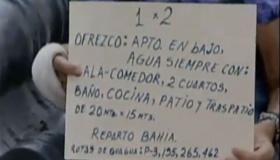 1 x 2
OFREZCO: APTO. EN BAJO,
AGUA SIEMPRE CON:
ALA-COMEDOR, 2 CUARTOS,
BAÑO, COCINA, PATIO Y TRASPATIO
DE 20 MTS. x 15 MTS.
REPARTO BAHIA.
RUTAS DE GUAGUA: P-3, 195, 265, 462